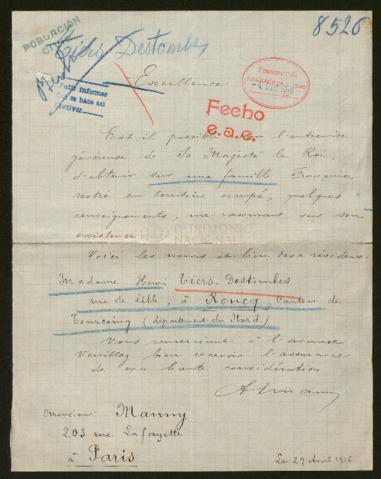 8526
POBLACION CIVIL
Tiers Destombes
Excellence
Fecho
e.a.e.
Est-il possible par l'entremise
généreuse de Sa Majesté le Roi,
d'obtenir sur une famille Française
restée en territoire occupé, quelques
renseignements, me rassurant sur son
existence.
Voici les noms et lieu de sa résidence.
Madame Henri Tiers-Destombes
rue de Lille, à Roncq, Canton de
Tourcoing (département du Nord)
Vous remerciant à l'avance
Veuillez bien recevoir l'assurance
de ma haute considération
A. Manny
Monsieur Manny
203 rue Lafayette
à Paris
Le 29 Avril 1916